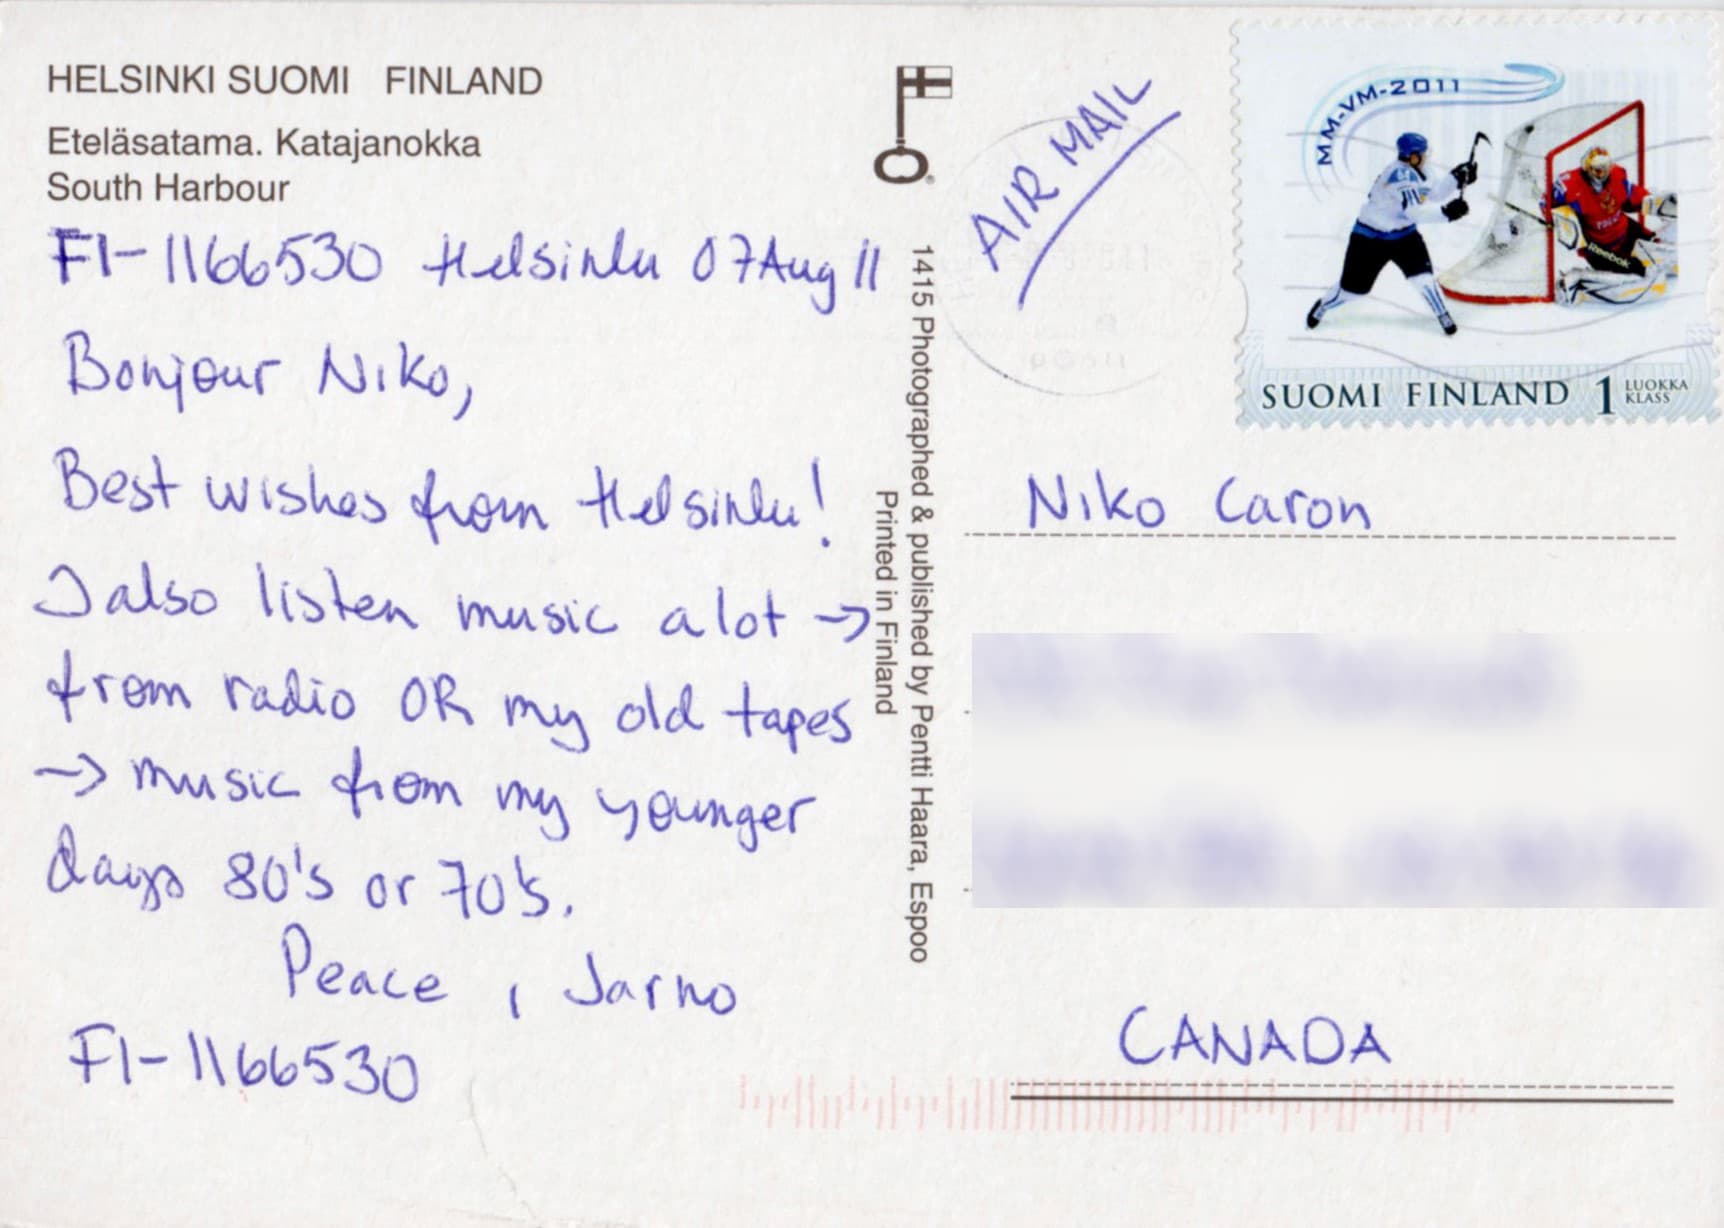 HELSINKI SUOMI FINLAND
Eteläsatama. Katajanokka
South Harbour
FI-1166530 Helsinki 07Aug11
Bonjour Niko,
Best wishes from Helsinki!
I also listen music a lot →
from radio OR my old tapes
→ music from my younger
days 80's or 70's.
Peace, Jarno
FI-1166530
1415 Photographed & published by Pentti Haara, Espoo
Printed in Finland
AIR MAIL
MM-VM-2011
Reebok
SUOMI FINLAND 1 LUOKKA
KLASS
Niko Caron
CANADA